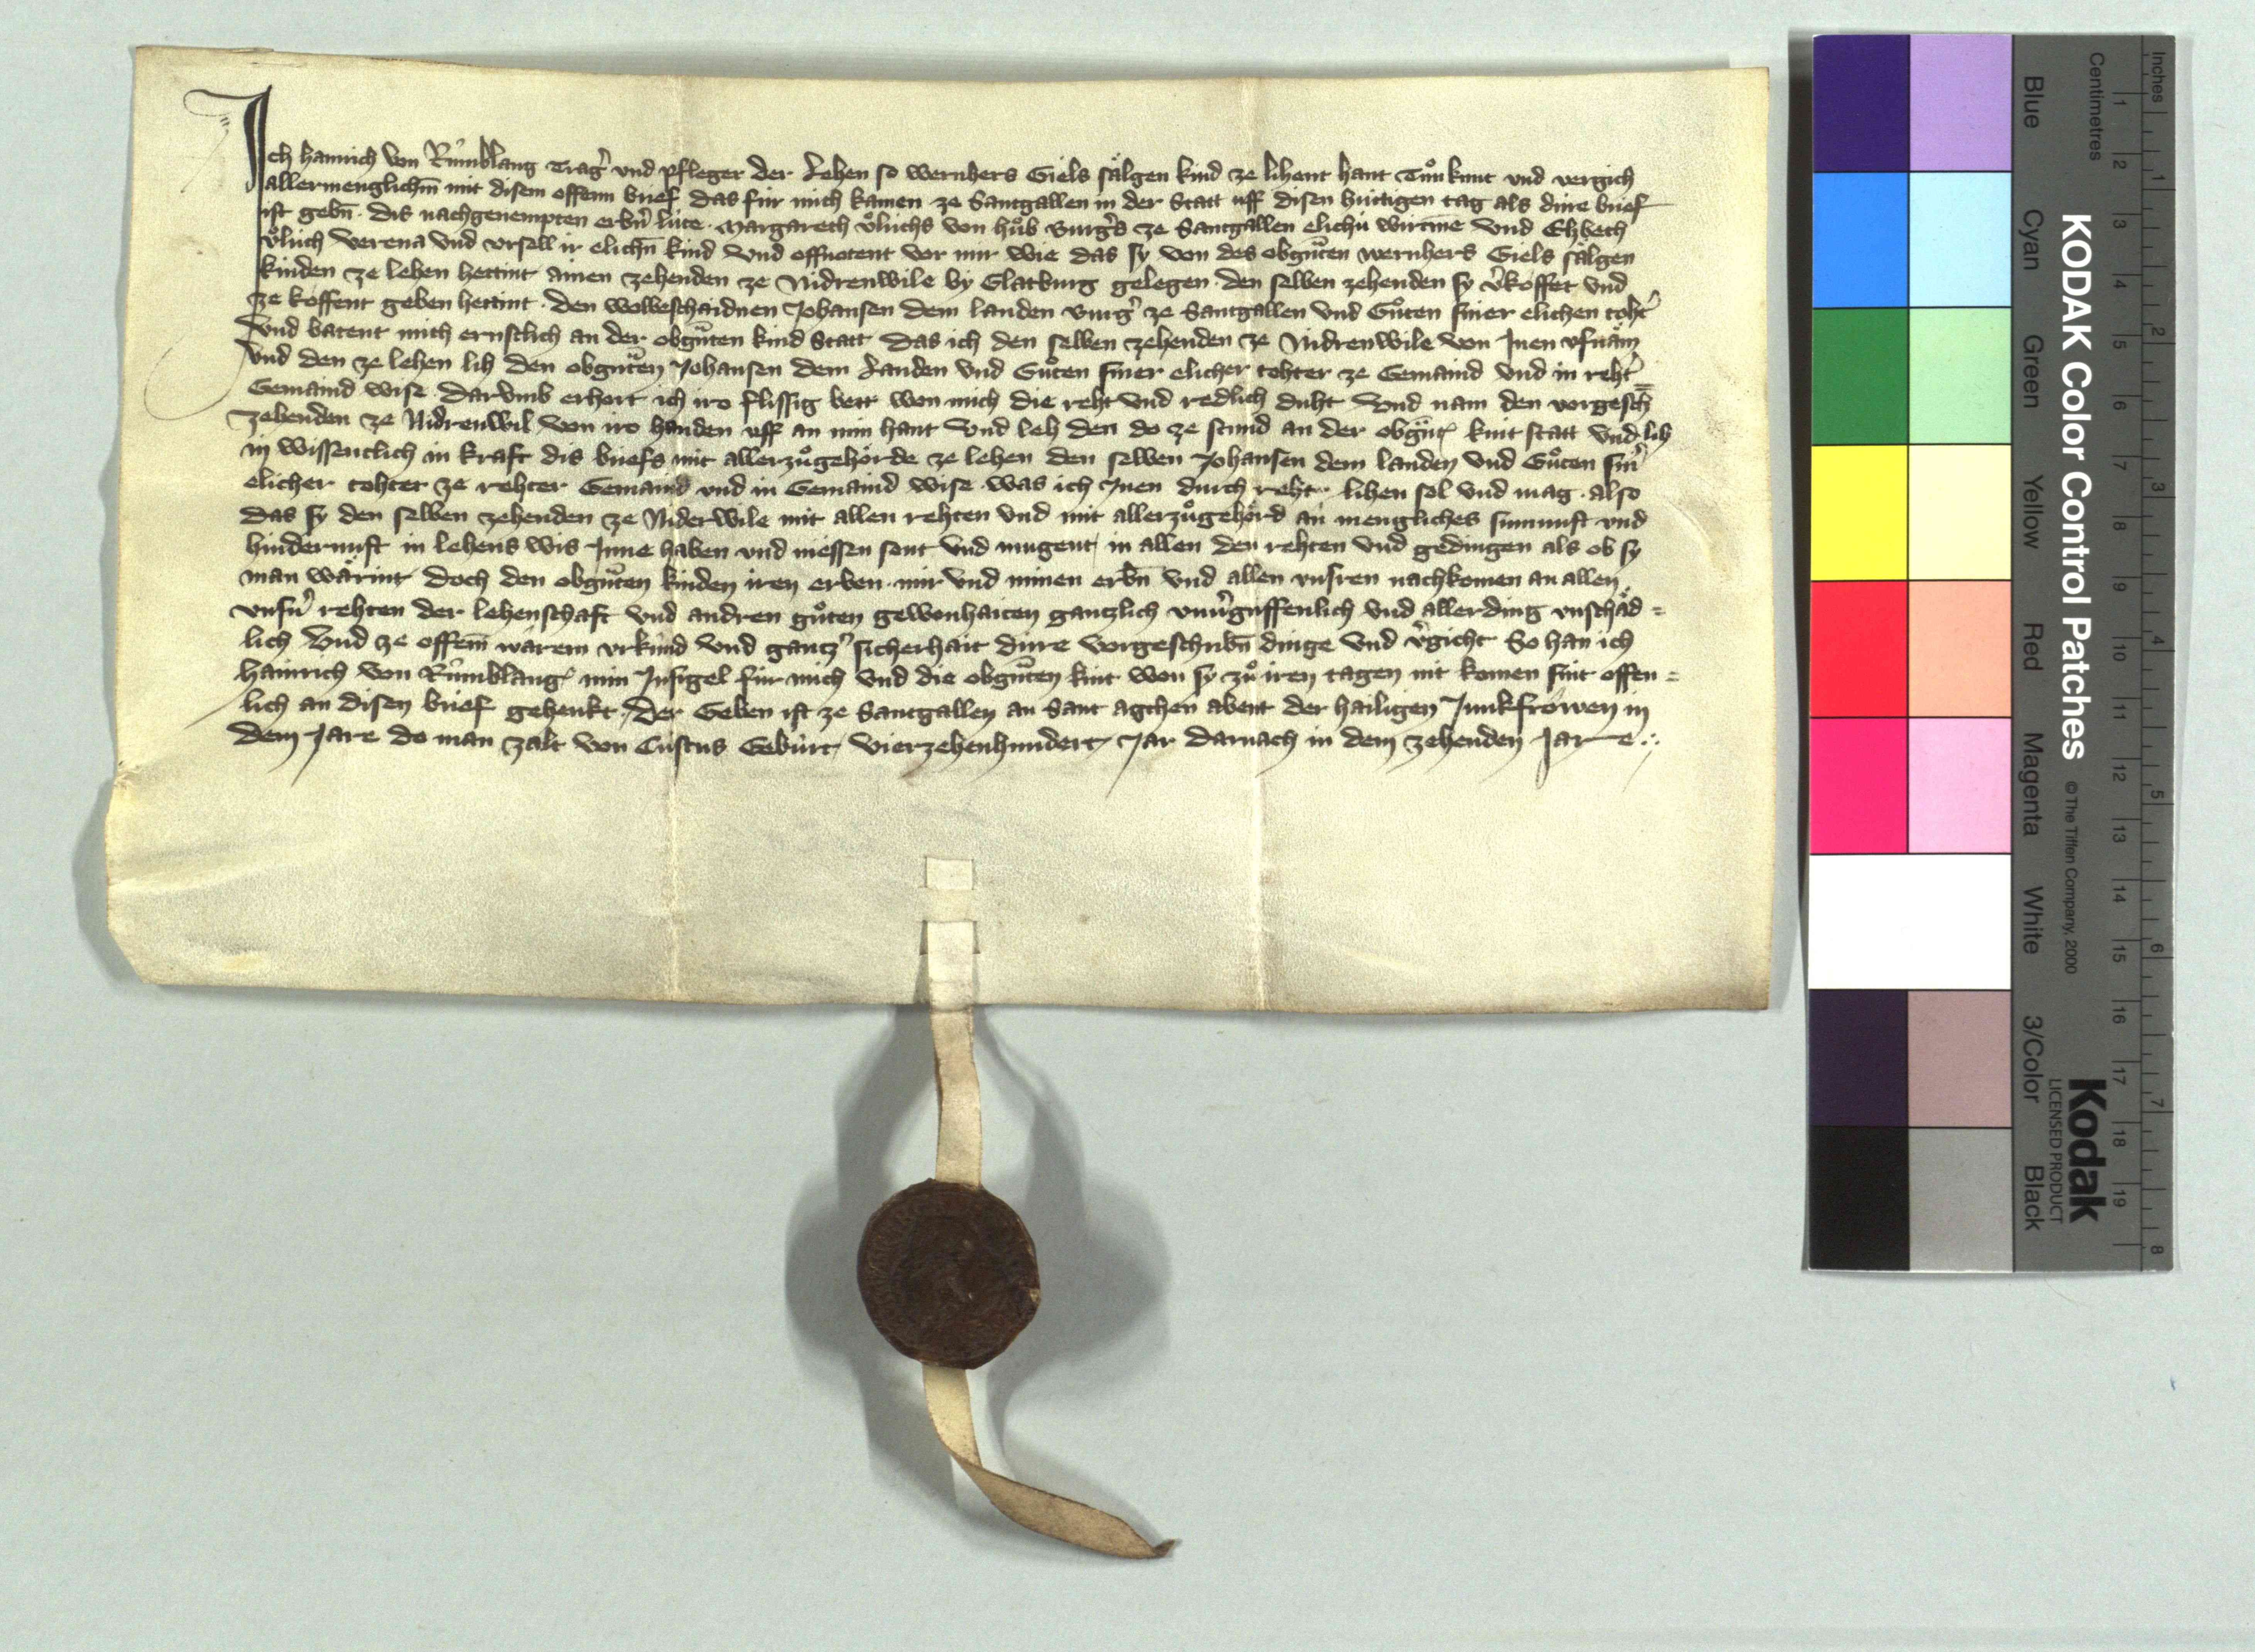 Ich hainrich von Rúmblang Trag̾ und pfleger der Lehen so wernhers Giels sálgen kind ze lihent hant Tůn kunt und vergich
allermenglichem̄ mit disem offenn brief das für mich kamen ze Santgallen in der Statt uff disen húttigen tag als dirre brief
ist gebn̄ . dis nachgenempten erbn̾ lúte . Margareth ůlrichs von hůb burg̾s ze Santgallen elichú wirtinē und Elzbeth
ůlrich verena und ursell ir elichn̄ kind und offnotent vor mir wie das sy von des obgn̄ten wernhers Giels sálgen
kinden ze lehen hettint ainen zehenden ze Nidrenwile by Glatburg gelegen . den selben zehenden sy v̾koffet und
ze koffent geben hettint . den wolbeschaidnen Johansen dem landen burg̾ ze Santgallen und Gůten siner elichen toht̾
und batent mich ernstlich an der obgn̄ten kind Statt das ich den selben zehenden ze Nidrenwile von Jnen ufnám
und den ze lehen lih den obgn̄ten Johansen dem Landen und Gůten siner elicher tohter ze Gemaind und in reht̾
Gemaind wise . darumb erhort ich iro flissig bett won mich die reht und redlich duht und nam den vorgesch̄
zehenden ze Nidrenwil von iro handen uff an min hant und leh den do ze stund an der obgn̄t kint statt und lih
in wissentlich in kraft dis briefs mit allerzůgehórde ze lehen den selben Johansen dem landen und Gůten sin̾
elicher tohter ze rehter Gemaind und in Gemaind wise . was ich Jnen durch reht lihen sol und mag . also
das sy den selben zehenden ze Niderwile mit allen rehten und mit allerzůgehórd an mengliches sumnust und
hindernust in lehens wis Jnne haben und niessen sont und mugent in allen den rehten und gedingen als ob sy
man wárint doch den obgn̄ten kinden iren erben . mir und minen erbn̄ und allen unsren nachkomen an allen
unsn̾ rehten der lehenschaft und andren gůten gewonhaiten gantzlich unv̾griffenlich und allerding unschád=
lich Und ze offem̄ warem urkúnd und gantz̾ sicherhait dirre vorgeschribn̄ dinge und v̾gicht So han ich
hainrich von Rúmblang min Jnsigel für mich und die obgn̄ten kint won sy zů iren tagen nit komen sint offen=
lich an disen brief gehenkt , der Geben ist ze Santgallen an Sant agthen abent der hailigen Junkfrówen in
dem Jare do man zalt von Cristus Gebúrt vierzehenhundert Jar darnach in dem zehenden Jare .
KODAK Color Control Patches
© The Tiffen Company, 2000
Kodak
LICENSED PRODUCT
Blue Cyan Green Yellow Red Magenta White 3/Color Black
Centimetres
1 2 3 4 5 6 7 8 9 10 11 12 13 14 15 16 17 18 19
Inches
1 2 3 4 5 6 7 8